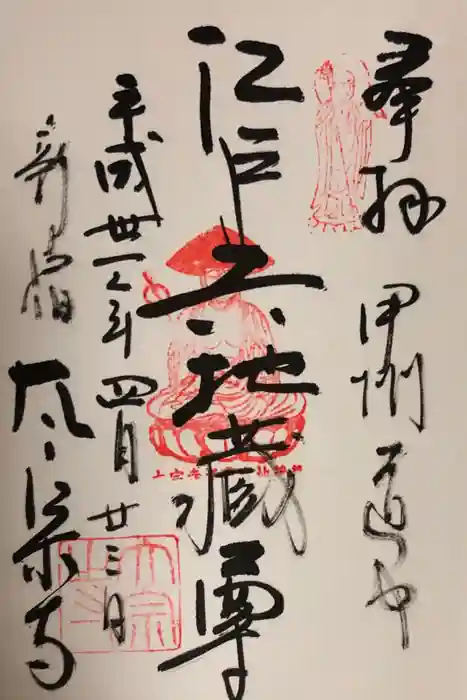 奉拝　甲州道中
江戸六地蔵尊
平成卅一年四月廿三日
新宿　太宗寺